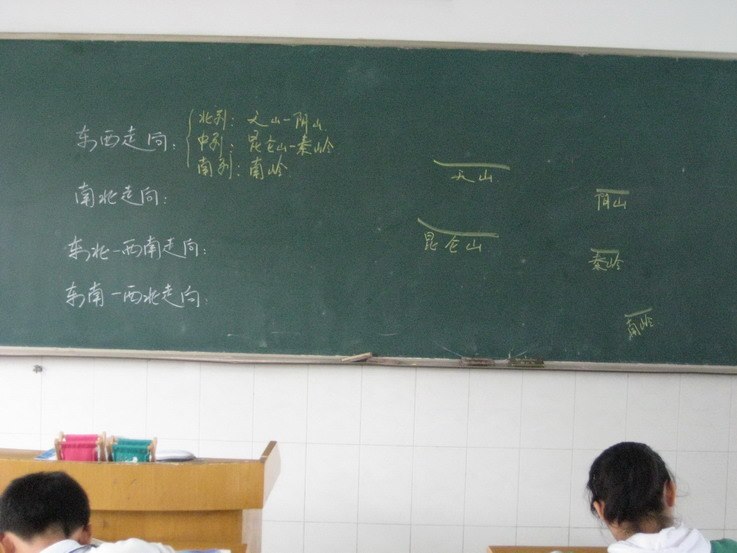 东西走向:
北列:天山-阴山
中列:昆仑山-秦岭
南列:南岭
南北走向:
东北-西南走向:
东南-西北走向:
天山
阴山
昆仑山
秦岭
南岭